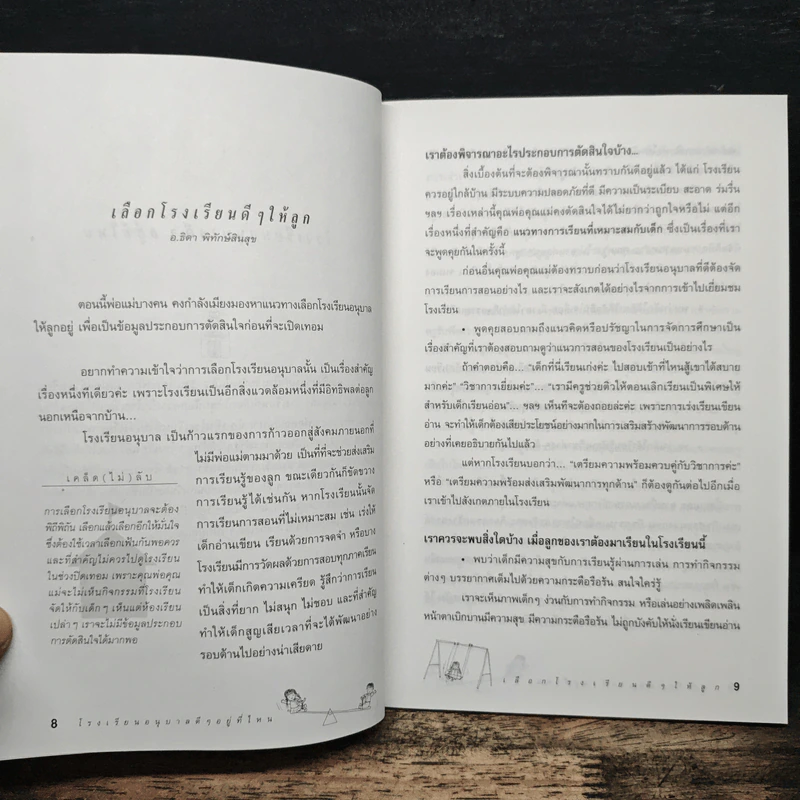 เลือกโรงเรียนดีๆให้ลูก
อ.ธิดา พิทักษ์สินสุข
ตอนนี้พ่อแม่บางคน คงกำลังเมียงมองหาแนวทางเลือกโรงเรียนอนุบาล
ให้ลูกอยู่ เพื่อเป็นข้อมูลประกอบการตัดสินใจก่อนที่จะเปิดเทอม
อยากทำความเข้าใจว่าการเลือกโรงเรียนอนุบาลนั้น เป็นเรื่องสำคัญ
เรื่องหนึ่งทีเดียวค่ะ เพราะโรงเรียนเป็นอีกสิ่งแวดล้อมหนึ่งที่มีอิทธิพลต่อลูก
นอกเหนือจากบ้าน...
โรงเรียนอนุบาล เป็นก้าวแรกของการก้าวออกสู่สังคมภายนอกที่
ไม่มีพ่อแม่ตามมาด้วย เป็นที่ที่จะช่วยส่งเสริม
การเรียนรู้ของลูก ขณะเดียวกันก็ขัดขวาง
การเรียนรู้ได้เช่นกัน หากโรงเรียนนั้นจัด
การเรียนการสอนที่ไม่เหมาะสม เช่น เร่งให้
เด็กอ่านเขียน เรียนด้วยการจดจำ หรือบาง
โรงเรียนมีการวัดผลด้วยการสอบทุกภาคเรียน
ทำให้เด็กเกิดความเครียด รู้สึกว่าการเรียน
เป็นสิ่งที่ยาก ไม่สนุก ไม่ชอบ และที่สำคัญ
ทำให้เด็กสูญเสียเวลาที่จะได้พัฒนาอย่าง
รอบด้านไปอย่างน่าเสียดาย
เคล็ด(ไม่)ลับ
การเลือกโรงเรียนอนุบาลจะต้อง
พิถีพิถัน เลือกแล้วเลือกอีกให้มั่นใจ
ซึ่งต้องใช้เวลาเลือกเฟ้นกันพอควร
และที่สำคัญไม่ควรไปดูโรงเรียน
ในช่วงปิดเทอม เพราะคุณพ่อคุณ
แม่จะไม่เห็นกิจกรรมที่โรงเรียน
จัดให้กับเด็กๆ เห็นแต่ห้องเรียน
เปล่าๆ เราจะไม่มีข้อมูลประกอบ
การตัดสินใจได้มากพอ
8 โรงเรียนอนุบาลดีๆอยู่ที่ไหน
เราต้องพิจารณาอะไรประกอบการตัดสินใจบ้าง...
สิ่งเบื้องต้นที่จะต้องพิจารณานั้นทราบกันดีอยู่แล้ว ได้แก่ โรงเรียน
ควรอยู่ใกล้บ้าน มีระบบความปลอดภัยที่ดี มีความเป็นระเบียบ สะอาด ร่มรื่น
ฯลฯ เรื่องเหล่านี้คุณพ่อคุณแม่คงตัดสินใจได้ไม่ยากว่าถูกใจหรือไม่ แต่อีก
เรื่องหนึ่งที่สำคัญคือ แนวทางการเรียนที่เหมาะสมกับเด็ก ซึ่งเป็นเรื่องที่เรา
จะพูดคุยกันในครั้งนี้
ก่อนอื่นคุณพ่อคุณแม่ต้องทราบก่อนว่าโรงเรียนอนุบาลที่ดีต้องจัด
การเรียนการสอนอย่างไร และเราจะสังเกตได้อย่างไรจากการเข้าไปเยี่ยมชม
โรงเรียน
• พูดคุยสอบถามถึงแนวคิดหรือปรัชญาในการจัดการศึกษาเป็น
เรื่องสำคัญที่เราต้องสอบถามดูว่าแนวการสอนของโรงเรียนเป็นอย่างไร
ถ้าคำตอบคือ... “เด็กที่นี่เรียนเก่งค่ะ ไปสอบเข้าที่ไหนสู้เขาได้สบาย
มากค่ะ” “วิชาการเยี่ยมค่ะ”... “เรามีครูช่วยติวให้ตอนเลิกเรียนเป็นพิเศษให้
สำหรับเด็กเรียนอ่อน”... ฯลฯ เห็นทีจะต้องถอยล่ะค่ะ เพราะการเร่งเรียนเขียน
อ่าน จะทำให้เด็กต้องเสียประโยชน์อย่างมากในการเสริมสร้างพัฒนาการรอบด้าน
อย่างที่เคยอธิบายกันไปแล้ว
แต่หากโรงเรียนบอกว่า... “เตรียมความพร้อมควบคู่กับวิชาการค่ะ”
หรือ “เตรียมความพร้อมส่งเสริมพัฒนาการทุกด้าน” ก็ต้องดูกันต่อไปอีกเมื่อ
เราเข้าไปสังเกตภายในโรงเรียน
เราควรจะพบสิ่งใดบ้าง เมื่อลูกของเราต้องมาเรียนในโรงเรียนนี้
• พบว่าเด็กมีความสุขกับการเรียนรู้ผ่านการเล่น การทำกิจกรรม
ต่างๆ บรรยากาศเต็มไปด้วยความกระตือรือร้น สนใจใคร่รู้
เราจะเห็นภาพเด็กๆ ง่วนกับการทำกิจกรรม หรือเล่นอย่างเพลิดเพลิน
หน้าตาเบิกบานมีความสุข มีความกระตือรือร้น ไม่ถูกบังคับให้นั่งเรียนเขียนอ่าน
เลือกโรงเรียนดีๆให้ลูก 9